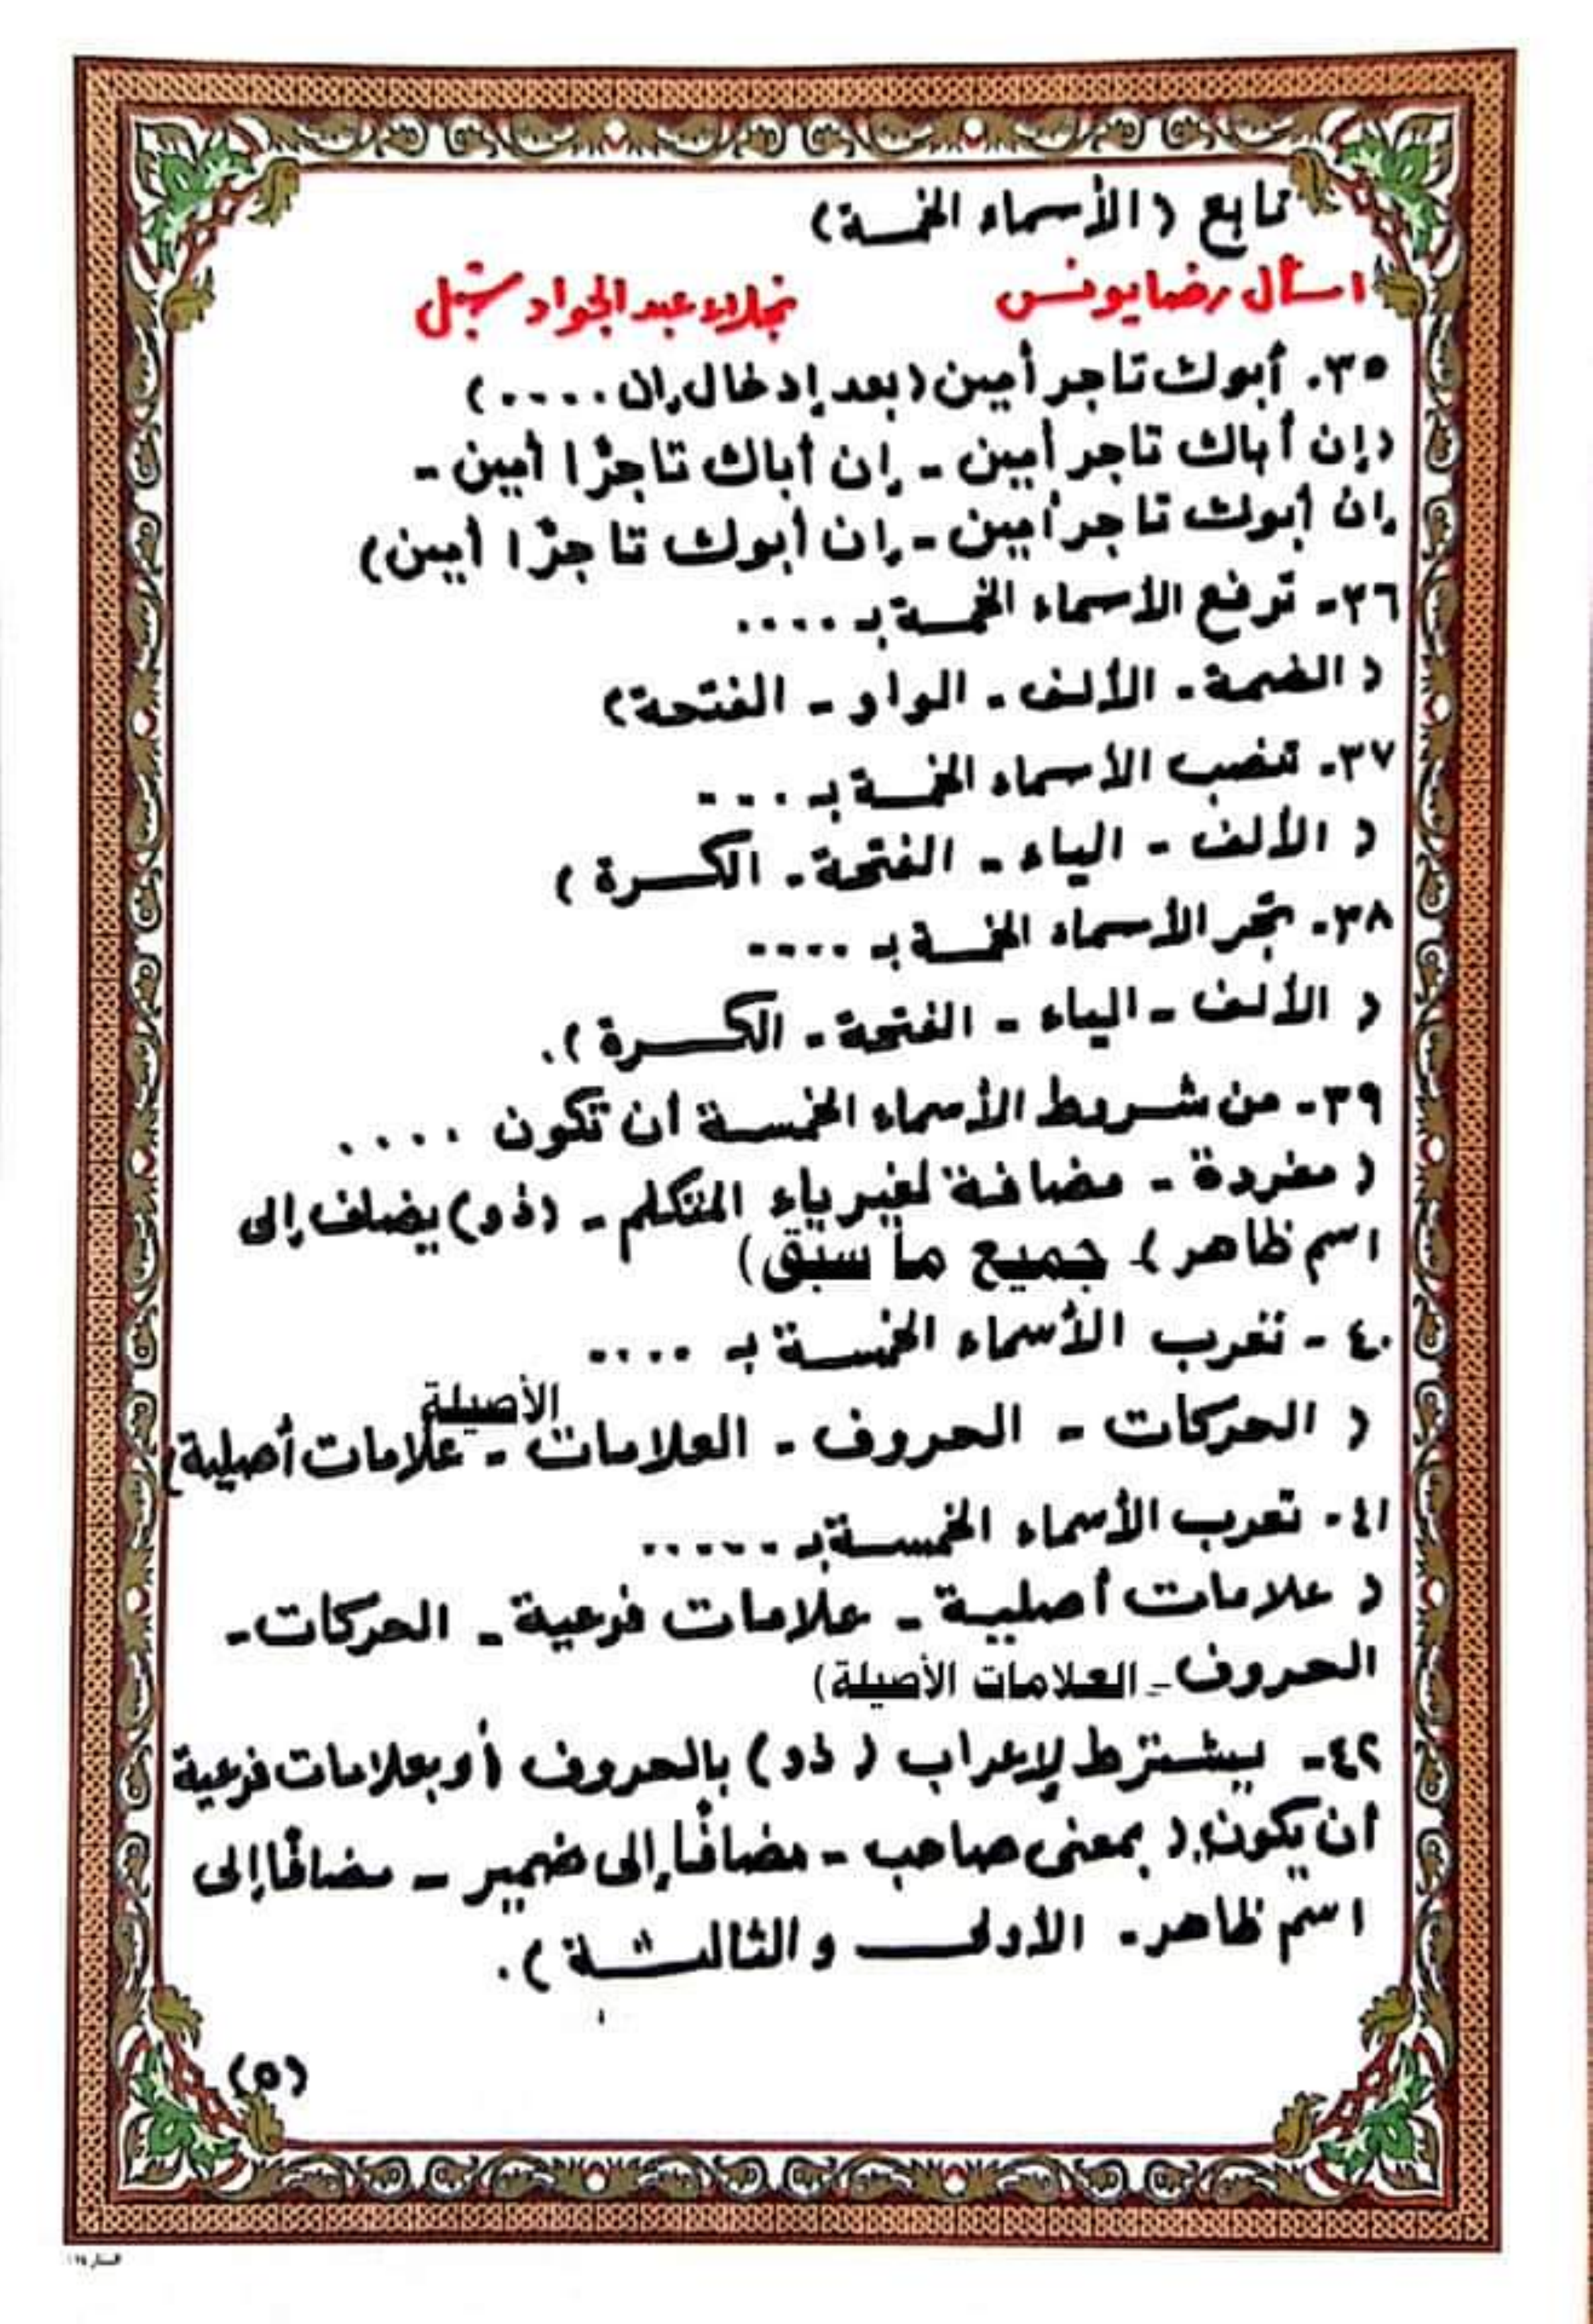 تابع (الأسماء الخمسة)
اسأل رضا يونس نجلاء عبد الجواد شبل
٣٥. أبوك تاجر أمين (بعد إدخال إن ....)
(إن أباك تاجر أمين - إن أباك تاجرًا أمين -
إن أبوك تاجر أمين - إن أبوك تاجرًا أمين)
٣٦- ترفع الأسماء الخمسة بـ ....
(الضمة - الألف - الواو - الفتحة)
٣٧- تنصب الأسماء الخمسة بـ ....
(الألف - الياء - الفتحة - الكسرة)
٣٨- تجر الأسماء الخمسة بـ ....
(الألف - الياء - الفتحة - الكسرة).
٣٩- من شريط الأسماء الخمسة أن تكون ....
(مفردة - مضافة لغير ياء المتكلم - (ذو) يضاف إلى
اسم ظاهر - جميع ما سبق)
٤٠- تعرب الأسماء الخمسة بـ ....
(الحركات - الحروف - العلامات الأصيلة - علامات أصلية)
٤١- تعرب الأسماء الخمسة بـ ......
(علامات أصلية - علامات فرعية - الحركات -
الحروف - العلامات الأصيلة)
٤٢- يشترط لإعراب (ذو) بالحروف أو بعلامات فرعية
أن يكون: (بمعنى صاحب - مضافًا إلى ضمير - مضافًا إلى
اسم ظاهر - الأولى والثالثة).
(٥)